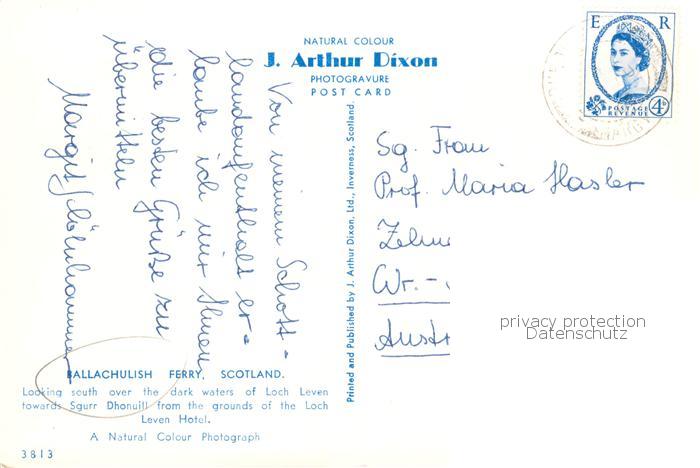 NATURAL COLOUR
J. Arthur Dixon
PHOTOGRAVURE
POST CARD
E R
POSTAGE
REVENUE
4D
Von meinem Schott-
landaufenthalt er-
laube ich mir Ihnen
die besten Grüße zu
übermitteln
Margit
Printed and Published by J. Arthur Dixon, Ltd., Inverness, Scotland.
Sg. Frau
Prof. Maria Hasler
Wr.-
Austr
privacy protection
Datenschutz
BALLACHULISH FERRY, SCOTLAND.
Looking south over the dark waters of Loch Leven
towards Sgurr Dhonuill from the grounds of the Loch
Leven Hotel.
A Natural Colour Photograph
3813